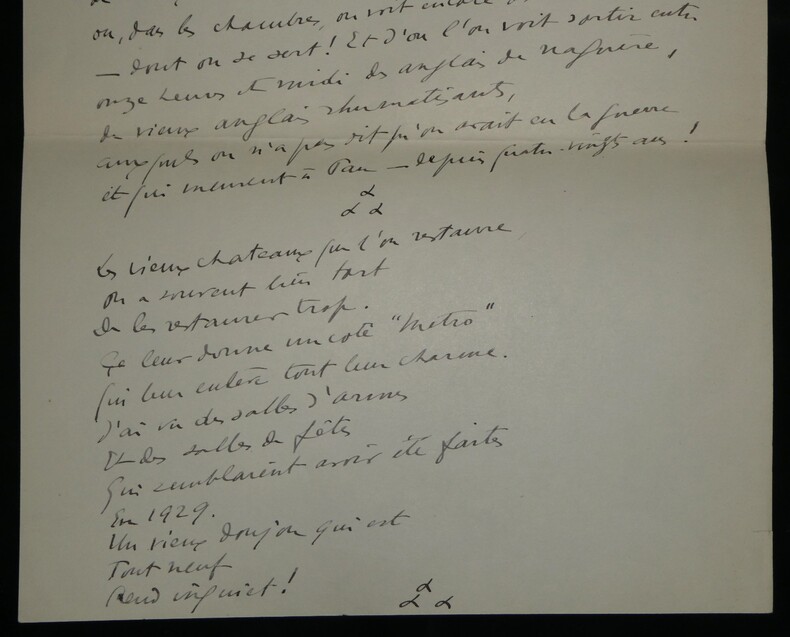 ou, dans les chambres, on voit encore
— dont on se sert! Et d'où l'on voit sortir entre
onze heures et midi des anglais de naguère,
de vieux anglais rhumatisants,
auxquels on n'a pas dit qu'on avait eu la guerre
et qui meurent à Pau — depuis quatre-vingts ans!
Les vieux chateaux que l'on restaure
on a souvent bien tort
De les restaurer trop.
Ça leur donne un coté "Metro"
Qui leur enlève tout leur charme.
J'ai vu des salles d'armes
Et des salles de fêtes
Qui semblaient avoir été faites
En 1929.
Un vieux donjon qui est
Tout neuf
Rend inquiet!